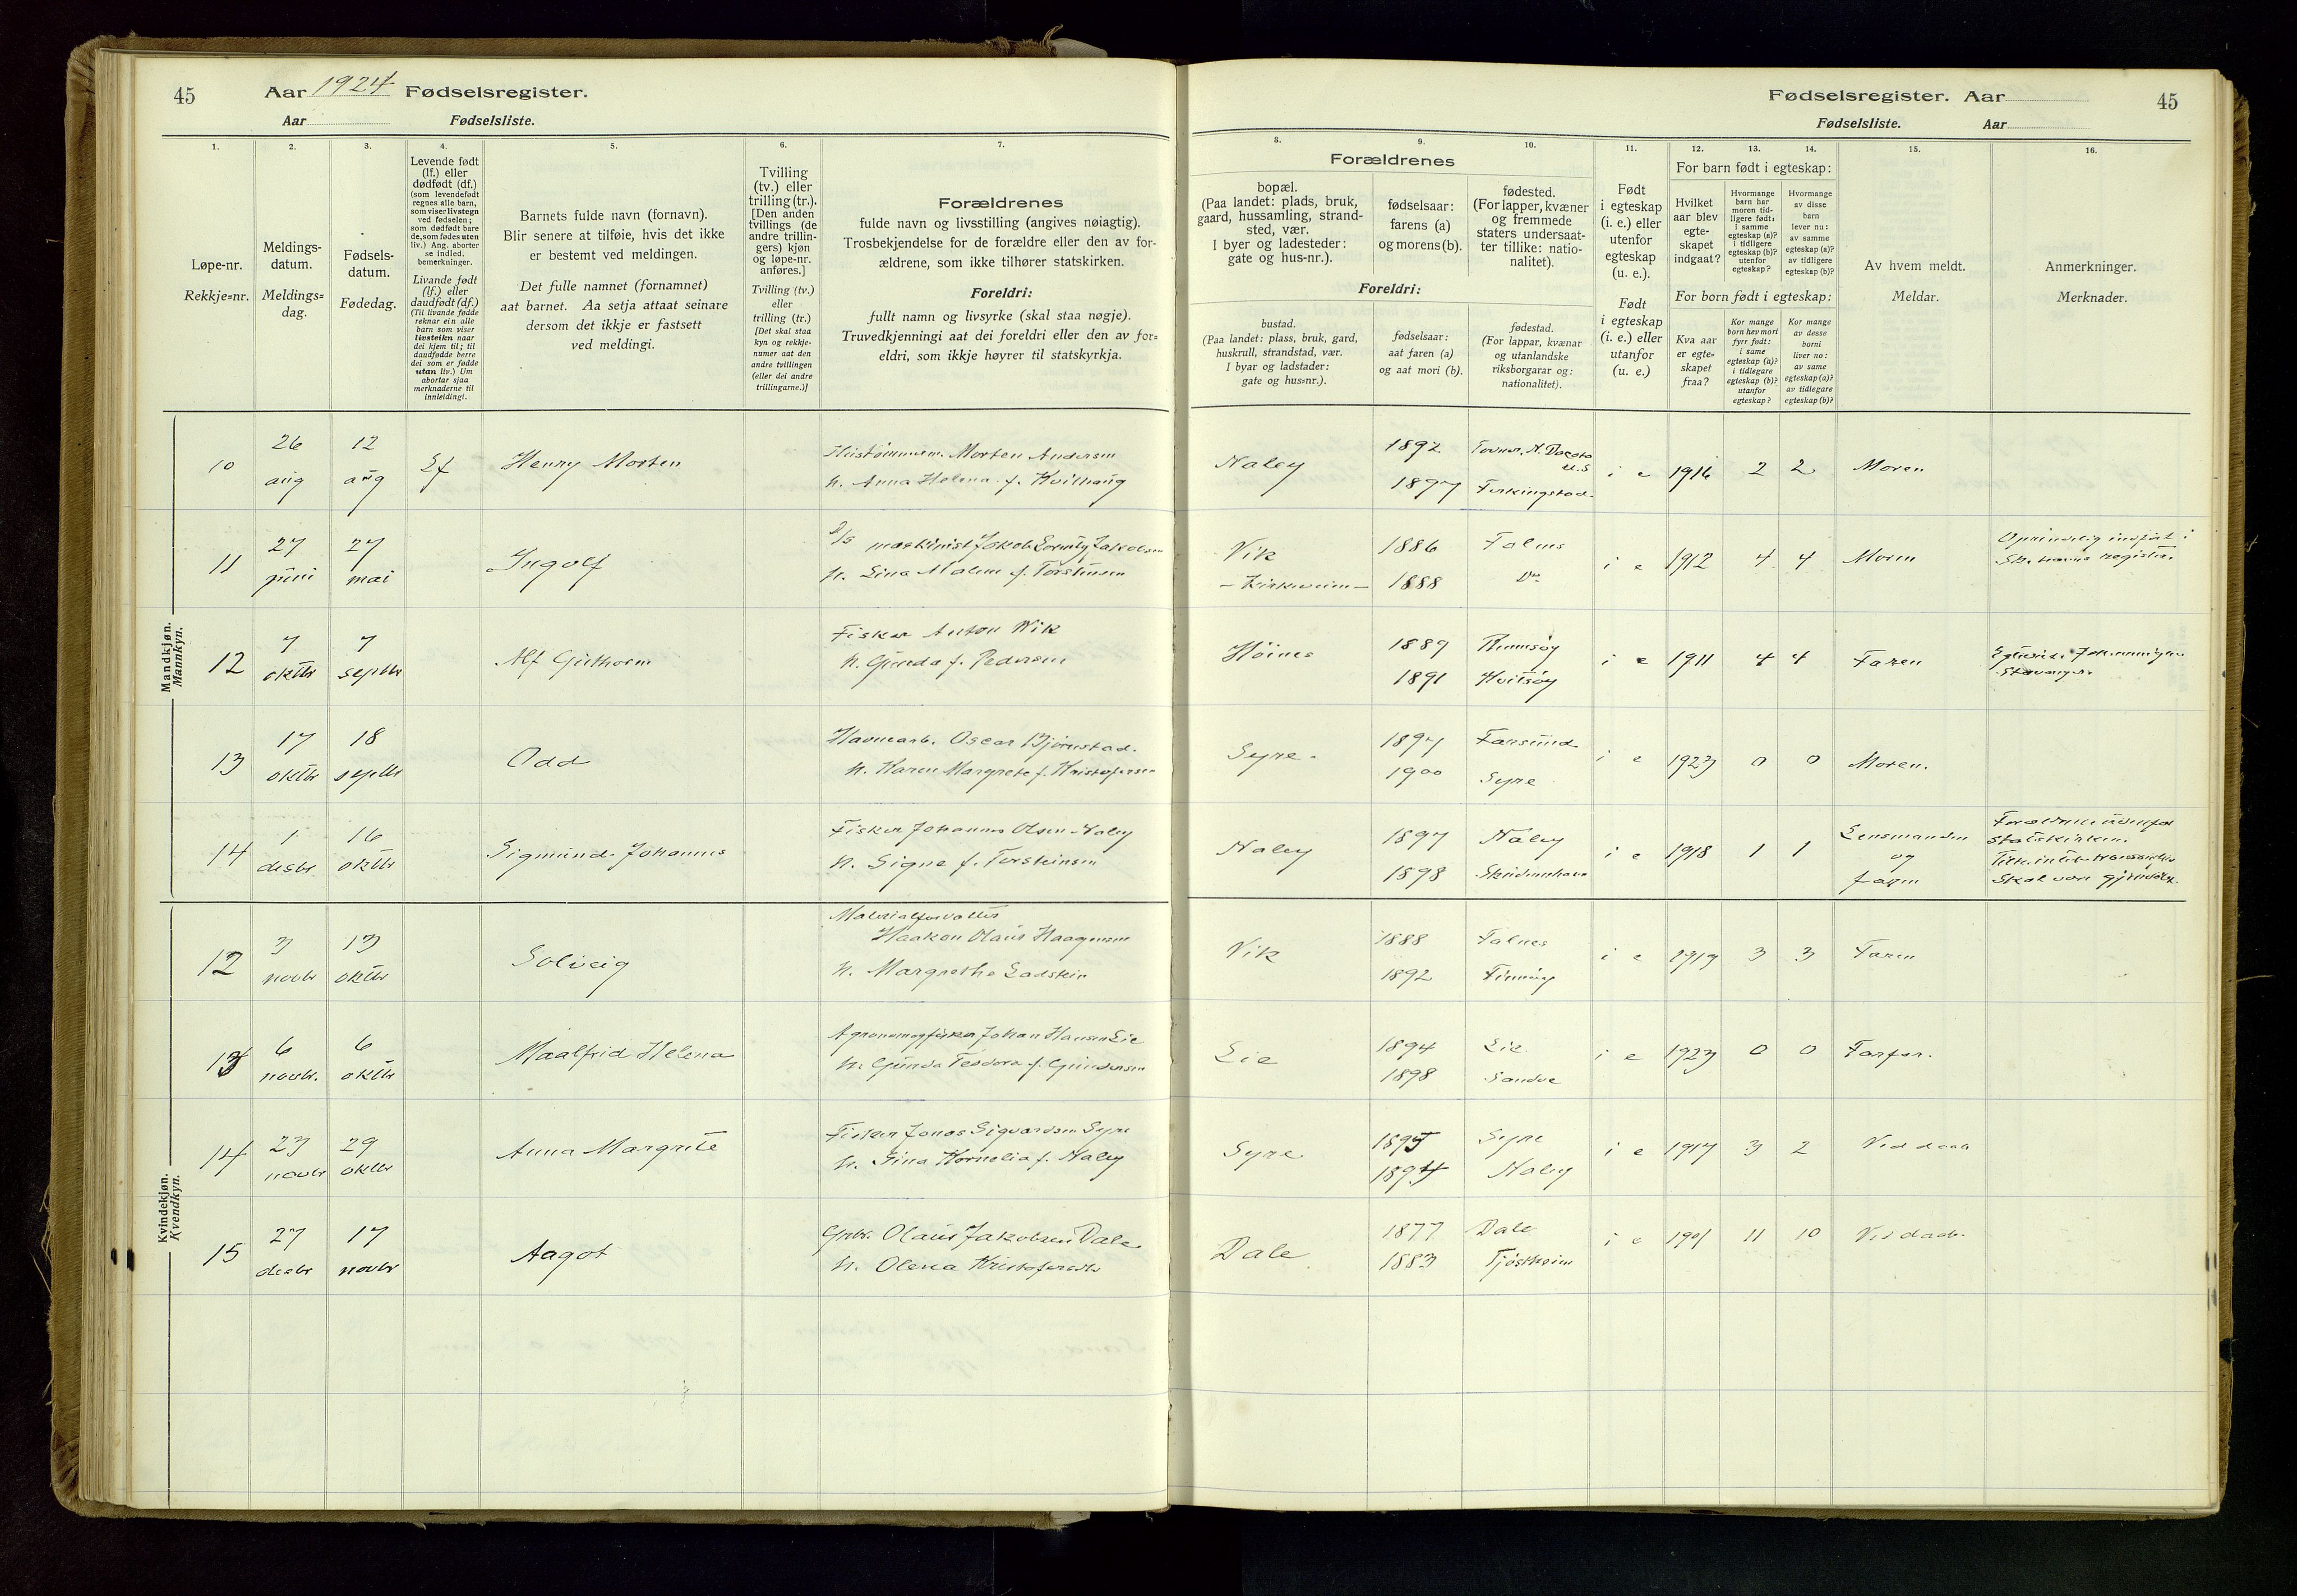 45 Aar 1924 Fødselsregister.
Aar Fødselsliste.
Fødselsregister. Aar 45
Fødselsliste. Aar
1. 2. 3. 4. 5. 6. 7.
Løpe-nr.
Rekkje=nr.
Meldings-
datum.
Meldings=
dag.
Fødsels-
datum.
Fødedag.
Levende født
(lf.) eller
dødfødt (df.)
(som levendefødt
regnes alle barn,
som viser livstegn
ved fødselen;
som dødfødt bare
de, som fødes uten
liv.) Ang. aborter
se indled.
bemerkninger.
Livande født
(lf.) eller
daudfødt (df.)
(Til livande fødde
reknar ein alle
barn som viser
livsteikn naar
dei kjem til; til
daudfødde berre
dei som er fødde
utan liv.) Um
abortar sjaa
merknaderne til
innleidingi.
Barnets fulde navn (fornavn).
Blir senere at tilføie, hvis det ikke
er bestemt ved meldingen.
Det fulle namnet (fornamnet)
aat barnet. Aa setja attaat seinare
dersom det ikkje er fastsett
ved meldingi.
Tvilling
(tv.) eller
trilling (tr.).
[Den anden
tvillings (de
andre trillin-
gers) kjøn
og løpe-nr.
anføres.]
Tvilling (tv.)
eller
trilling (tr.)
[Det skal staa
kyn og rekkje-
numer aat den
andre tvillingen
(eller dei andre
trillingarne.)]
Forældrenes
fulde navn og livsstilling (angives nøiagtig).
Trosbekjendelse for de forældre eller den av for-
ældrene, som ikke tilhører statskirken.
Foreldri:
fullt namn og livsyrke (skal staa nøgje).
Truvedkjenningi aat dei foreldri eller den av for=
eldri, som ikkje høyrer til statskyrkja.
8. 9. 10. 11. 12. 13. 14. 15. 16.
Forældrenes
bopæl.
(Paa landet: plads, bruk,
gaard, hussamling, strand-
sted, vær.
I byer og ladesteder:
gate og hus-nr.).
fødselsaar:
farens (a)
og morens (b).
fødested.
(For lapper, kvæner
og fremmede
staters undersaat-
ter tillike: natio-
nalitet).
Foreldri:
bustad.
(Paa landet: plass, bruk, gard,
huskrull, strandstad, vær.
I byar og ladstader:
gate og hus=nr.).
fødselsaar:
aat faren (a)
og aat mori (b).
fødestad.
(For lappar, kvænar
og utanlandske
riksborgarar og:
nationalitet).
Født
i egteskap
(i. e.) eller
utenfor
egteskap
(u. e.).
Født
i egteskap
(i. e.) eller
utanfor
egteskap
(u. e.)
For barn født i egteskap:
Hvilket
aar blev
egte-
skapet
indgaat?
Hvormange
barn har
moren tid-
ligere født:
i samme
egteskap (a)?
i tidligere
egteskap (b)?
utenfor
egteskap?
Hvormange
av disse
barn
lever nu:
av samme
egteskap (a)?
av tidligere
egteskap (b)?
For born født i egteskap:
Kva aar
er egte=
skapet
fraa?
Kor mange
born hev mori
fyrr født:
i same
egteskap (a)?
i tidlegare
egteskap (b)?
utanfor
egteskap?
Kor mange
av desse
borni
liver no:
av same
egteskap (a)?
av tidlegare
egteskap (b)?
Av hvem meldt.
Meldar.
Anmerkninger.
Merknader.
Mandkjøn.
Mannkyn.
10 26 aug 12 aug Lf Henry Morten
Morten Andersen
h. Anna Helena f. Kvilhaug
Naley 1892 1897 Ferkingstad i e 1916 2 2 Moren
11 27 juni 27 mai Ingolf
D/S maskinist Jakob Jakobsen
h. Lina Malene f. Torstensen
Vik 1886 Falnes
1888 Do i e 1912 4 4 Moren
Oprindelig indført i
12 7 oktbr 7 septbr Alf Guthorm
Fisker Anton Vik
h. Gunda f. Pedersen
Høines 1889
1891 Hvitsøy i e 1911 4 4 Faren
Stavanger
13 17 oktbr 18 septbr Odd
Havnearb. Oscar Bjørnstad.
h. Karen Margrete f. Kristofersen
Syre 1897 Farsund
1900 Syre i e 1923 0 0 Moren.
14 1 desbr 16 oktbr Sigmund Johannes
Fisker Johannes Olsen Naley
h. Signe f. Torsteinsen
Naley 1897 Naley
1898 Skudeneshavn i e 1918 1 1 Lensmanden
og
faren
Forældrene utenfor
statskirken.
Kvindekjøn.
Kvendkyn.
12 3 novbr 13 oktbr Solveig
Materialforvalter
Haakon Olaus Haagensen
h. Margrethe Ladstein
Vik 1888 Falnes
1892 Finnøy i e 1919 3 3 Faren
13 6 novbr. 6 oktbr Maalfrid Helena
Agronom og fisker Johan Hansen Lie
h. Gunda Teodora f. Gundersen
Lie 1894 Lie
1898 Sandve i e 1923 0 0 Farfar.
14 23 novbr 29 oktbr Anna Margrete
Fisker Jonas Sigvardsen Syre
h. Gina Kornelia f. Naley
Syre 1895 Syre
1894 Naley i e 1917 3 2 Ved daab
15 27 desbr 17 novbr Aagot
Gbr. Olaus Jakobsen Dale
h. Olena Kristofersdtr
Dale 1877 Dale
1883 Tjøstheim i e 1901 11 10 Ved daab.